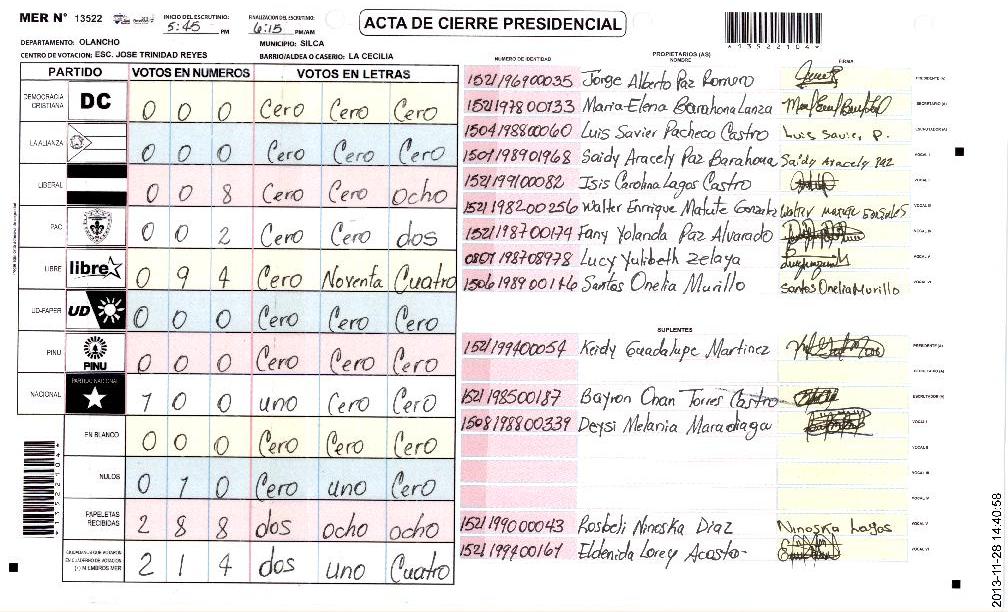 MER Nº 13522
INICIO DEL ESCRUTINIO: 5:45 PM
FINALIZACION DEL ESCRUTINIO: 6:15 PM/AM
ACTA DE CIERRE PRESIDENCIAL
*13522104*
DEPARTAMENTO: OLANCHO
MUNICIPIO: SILCA
CENTRO DE VOTACION: ESC. JOSE TRINIDAD REYES
BARRIO/ALDEA O CASERIO: LA CECILIA
PARTIDO VOTOS EN NUMEROS VOTOS EN LETRAS
DEMOCRACIA CRISTIANA DC 0 0 0 Cero Cero Cero
LA ALIANZA 0 0 0 Cero Cero Cero
LIBERAL 0 0 8 Cero Cero ocho
PAC 0 0 2 Cero Cero dos
LIBRE libre 0 9 4 Cero Noventa Cuatro
UD-FAPER UD 0 0 0 Cero Cero Cero
PINU PINU 0 0 0 Cero Cero Cero
NACIONAL PARTIDO NACIONAL 1 0 0 uno Cero Cero
EN BLANCO 0 0 0 Cero Cero Cero
NULOS 0 1 0 Cero uno Cero
PAPELETAS RECIBIDAS 2 8 8 dos ocho ocho
CIUDADANOS QUE VOTARON EN CUADERNO DE VOTACION (+) MIEMBROS MER 2 1 4 dos uno Cuatro
*13522104*
PROPIETARIOS (AS)
NUMERO DE IDENTIDAD NOMBRE FIRMA
1521196900035 Jorge Alberto Paz Romero PRESIDENTE (A)
1521197800133 Maria Elena Barahona Lanza SECRETARIO (A)
1504198800060 Luis Savier Pacheco Castro Luis Savier P. ESCRUTADOR (A)
1501198901968 Saidy Aracely Paz Barahona Saidy Aracely Paz VOCAL I
1521199100082 Isis Carolina Lagos Castro VOCAL II
1521198200256 Walter Enrrique Matute Gonzalz VOCAL III
1521198700174 Fany Yolanda Paz Alvarado VOCAL IV
0801198708978 Lucy Yulibeth Zelaya VOCAL V
1506198900146 Santos Onelia Murillo Santos Onelia Murillo VOCAL VI
SUPLENTES
1521199400054 Keidy Guadalupe Martinez PRESIDENTE (A)
SECRETARIO (A)
1521198500187 Bayron Chan Torres Castro ESCRUTADOR (A)
1508198800339 Deysi Melania Maradiaga VOCAL I
VOCAL II
VOCAL III
VOCAL IV
1521199000043 Rosbeli Ninoska Diaz Ninoska Lagos VOCAL V
1521199400167 Eldenida Lorey Acosta VOCAL VI
2013-11-28 14:40:58